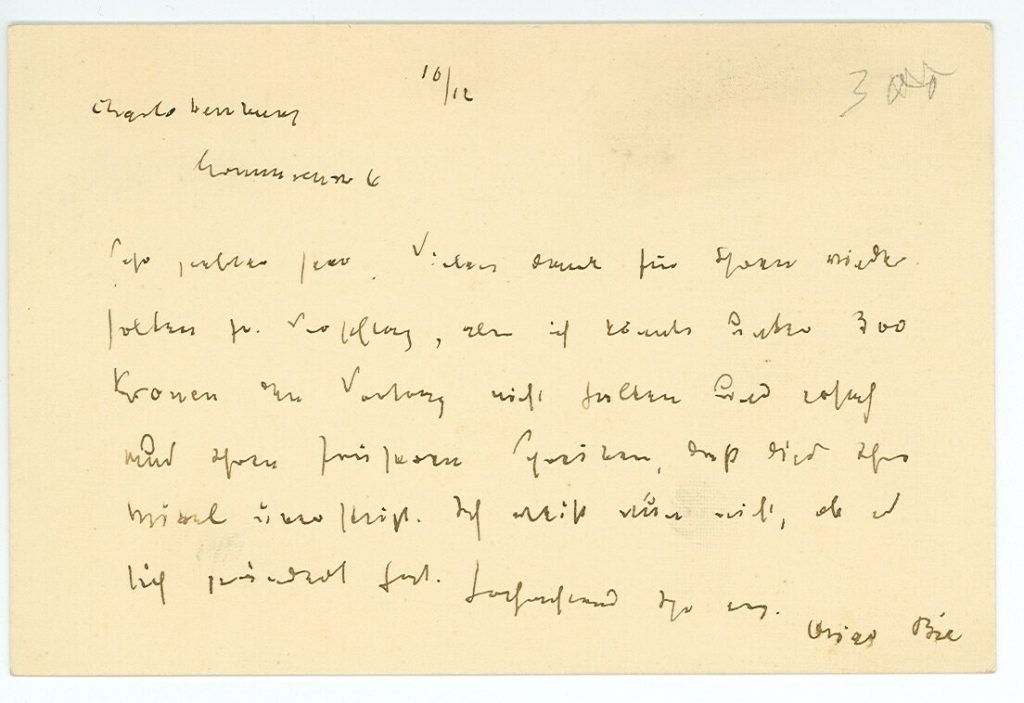 Charlottenburg
10/12
6
Sehr geehrter Herr, Vielen Dank für Ihren wieder
holten fr. Vorschlag, aber ich könnte unter 300
Kronen den Vortrag nicht halten und ersah
aus Ihrem früheren Schreiben, daß dies Ihre
Mittel übersteigt. Ich weiß nun nicht, ob es
sich geändert hat. Hochachtend Ihr erg.
Oscar Bie